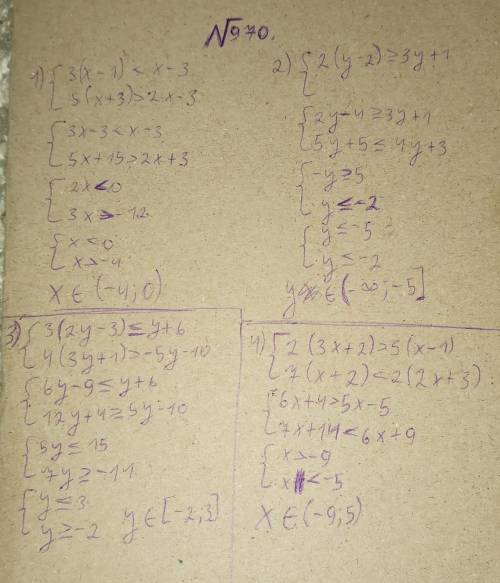 №970.
1) { 3(x-1) < x-3
5(x+3)>2x-3
{ 3x-3<x-3
5x+15>2x+3
{ 2x<0
3x>-12
{ x<0
x>-4
x∈(-4;0)
2) { 2(y-2)≥3y+1
{ 2y-4≥3y+1
5y+5≤4y+3
{ -y≥5
y≤-2
{ y≤-5
y≤-2
y∈(-∞;-5]
3) { 3(2y-3)≤y+6
4(3y+1)>-5y-10
{ 6y-9≤y+6
12y+4≥5y-10
{ 5y≤15
7y≥-14
{ y≤3
y≥-2 y∈[-2;3]
4) { 2(3x+2)>5(x-1)
7(x+2)<2(2x+3)
{ 6x+4>5x-5
7x+14<6x+9
{ x>-9
x<-5
x∈(-9;5)